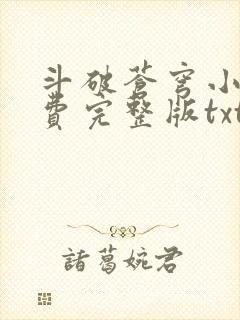 斗破苍穹小
費完整版txt
諸葛婉君